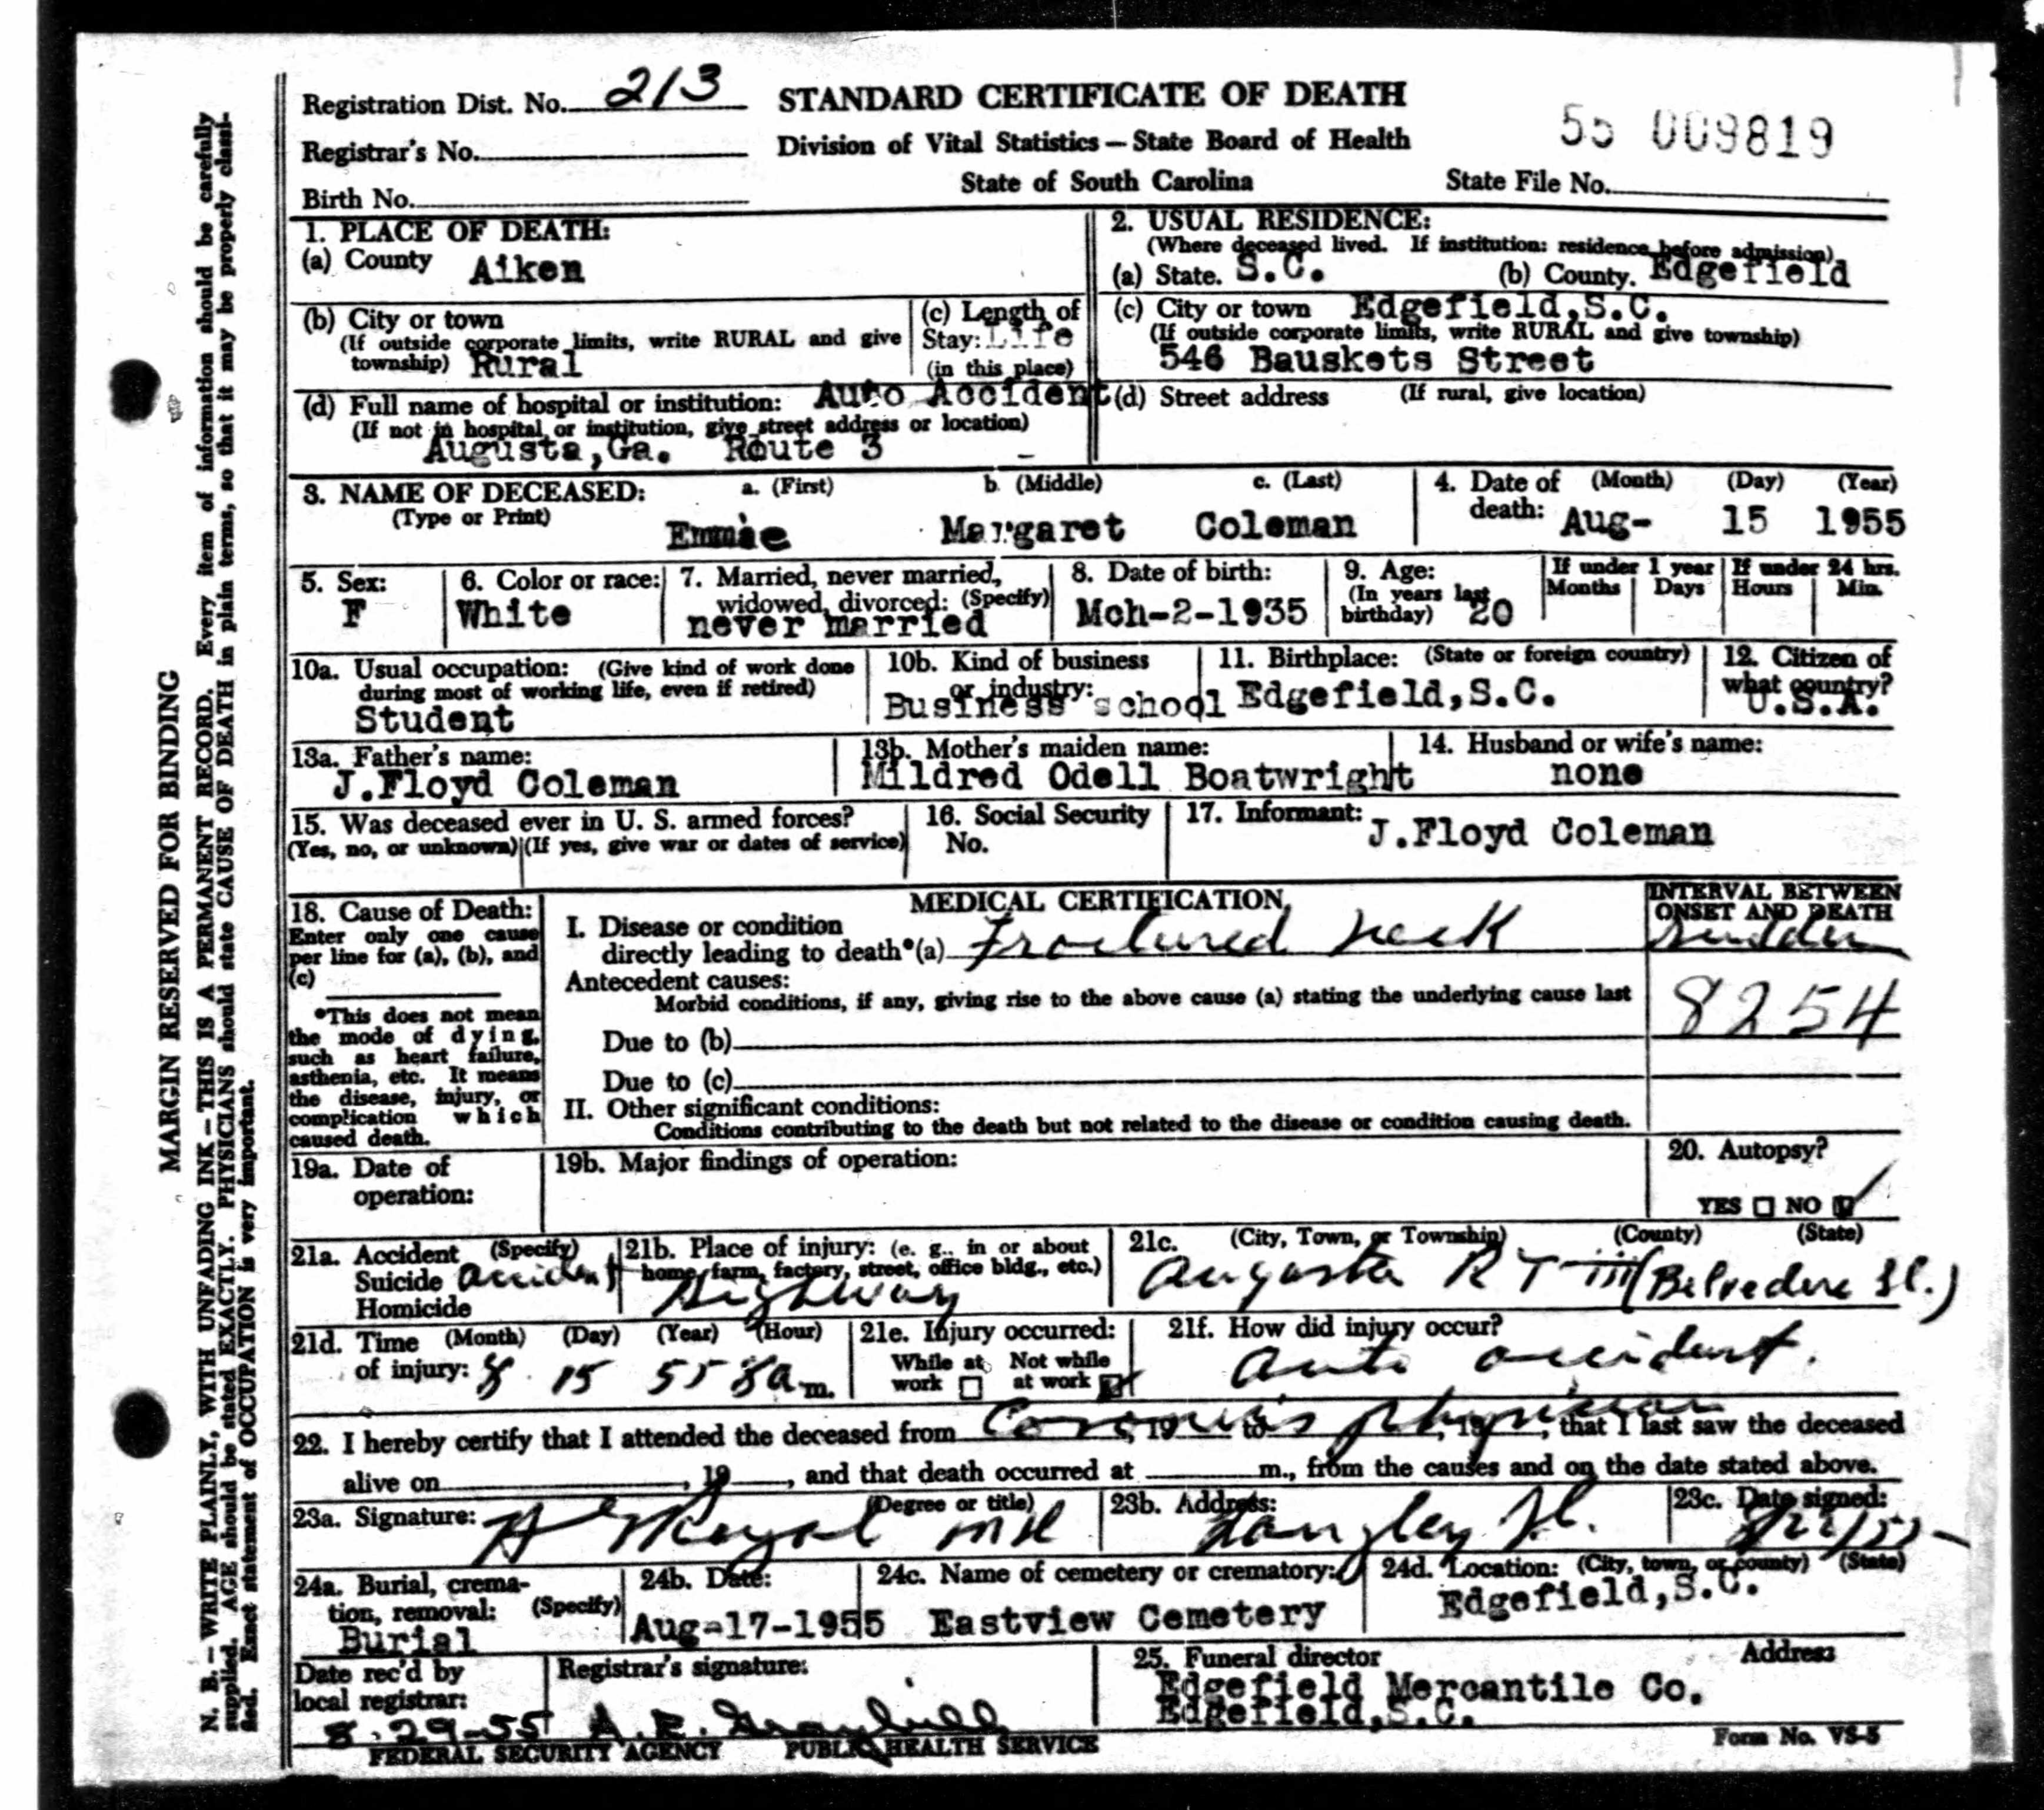 Registration Dist. No. 213
STANDARD CERTIFICATE OF DEATH
55 009819
Registrar's No.
Division of Vital Statistics — State Board of Health
Birth No.
State of South Carolina
State File No.
1. PLACE OF DEATH:
(a) County Aiken
2. USUAL RESIDENCE:
(Where deceased lived. If institution: residence before admission)
(a) State. S.C. (b) County. Edgefield
(b) City or town
(If outside corporate limits, write RURAL and give
township) Rural
(c) Length of
Stay: Life
(in this place)
(c) City or town Edgefield,S.C.
(If outside corporate limits, write RURAL and give township)
546 Bauskets Street
(d) Full name of hospital or institution: Auto Accident
(If not in hospital or institution, give street address or location)
Augusta,Ga. Route 3
(d) Street address (If rural, give location)
3. NAME OF DECEASED: a. (First) b. (Middle) c. (Last)
(Type or Print)
Emmie Margaret Coleman
4. Date of (Month) (Day) (Year)
death: Aug- 15 1955
5. Sex:
F
6. Color or race:
White
7. Married, never married,
widowed, divorced: (Specify)
never married
8. Date of birth:
Mch-2-1935
9. Age:
(In years last
birthday) 20
If under 1 year
Months Days
If under 24 hrs.
Hours Min.
10a. Usual occupation: (Give kind of work done
during most of working life, even if retired)
Student
10b. Kind of business
or industry:
Business school
11. Birthplace: (State or foreign country)
Edgefield,S.C.
12. Citizen of
what country?
U.S.A.
13a. Father's name:
J.Floyd Coleman
13b. Mother's maiden name:
Mildred Odell Boatwright
14. Husband or wife's name:
none
15. Was deceased ever in U. S. armed forces?
(Yes, no, or unknown) (If yes, give war or dates of service)
16. Social Security
No.
17. Informant:
J.Floyd Coleman
18. Cause of Death:
Enter only one cause
per line for (a), (b), and
(c)
*This does not mean
the mode of dying,
such as heart failure,
asthenia, etc. It means
the disease, injury, or
complication which
caused death.
MEDICAL CERTIFICATION
I. Disease or condition
directly leading to death*(a) Fractured neck
Antecedent causes:
Morbid conditions, if any, giving rise to the above cause (a) stating the underlying cause last
Due to (b)
Due to (c)
II. Other significant conditions:
Conditions contributing to the death but not related to the disease or condition causing death.
INTERVAL BETWEEN
ONSET AND DEATH
Sudden
8254
19a. Date of
operation:
19b. Major findings of operation:
20. Autopsy?
YES NO
21a. Accident (Specify)
Suicide accident
Homicide
21b. Place of injury: (e. g., in or about
home, farm, factory, street, office bldg., etc.)
Highway
21c. (City, Town, or Township) (County) (State)
Augusta RT III (Belvedere S.C.)
21d. Time (Month) (Day) (Year) (Hour)
of injury: 8 15 55 8 a m.
21e. Injury occurred:
While at Not while
work at work
21f. How did injury occur?
Auto accident.
22. I hereby certify that I attended the deceased from Coroner's physician, 19 to , 19 , that I last saw the deceased
alive on , 19 , and that death occurred at m., from the causes and on the date stated above.
23a. Signature: (Degree or title)
MD
23b. Address:
Langley S.C.
23c. Date signed:
8/22/55
24a. Burial, crema-
tion, removal: (Specify)
Burial
24b. Date:
Aug-17-1955
24c. Name of cemetery or crematory:
Eastview Cemetery
24d. Location: (City, town, or county) (State)
Edgefield,S.C.
Date rec'd by
local registrar:
8-29-55
Registrar's signature:
A. E.
25. Funeral director Address
Edgefield Mercantile Co.
Edgefield,S.C.
FEDERAL SECURITY AGENCY PUBLIC HEALTH SERVICE
Form No. VS-5
MARGIN RESERVED FOR BINDING
N. B. — WRITE PLAINLY, WITH UNFADING INK — THIS IS A PERMANENT RECORD. Every item of information should be carefully
supplied. AGE should be stated EXACTLY. PHYSICIANS should state CAUSE OF DEATH in plain terms, so that it may be properly classi-
fied. Exact statement of OCCUPATION is very important.